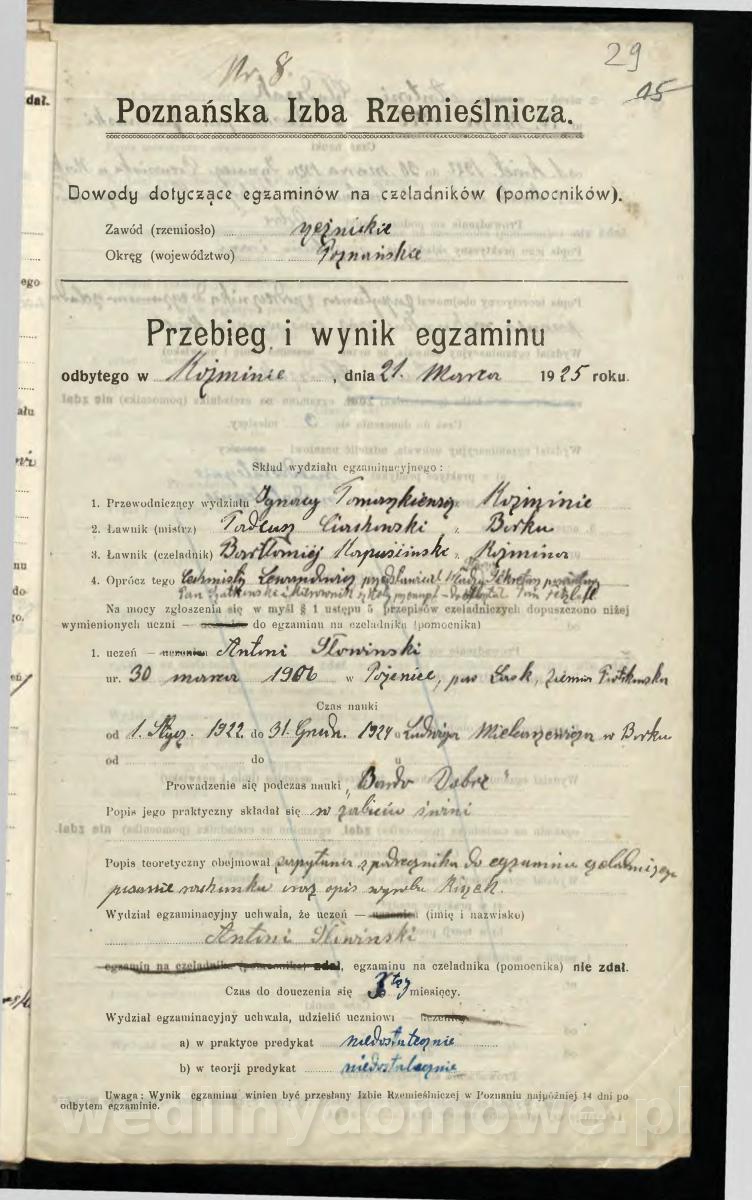 Nr. 8
29
Poznańska Izba Rzemieślnicza.
Dowody dotyczące egzaminów na czeladników (pomocników).
Zawód (rzemiosło) rzeźnickie
Okręg (województwo) Poznańskie
Przebieg i wynik egzaminu
odbytego w Koźminie, dnia 21. Marca 1925 roku.
Skład wydziału egzaminacyjnego:
1. Przewodniczący wydziału Ignacy Koźminie
2. Ławnik (mistrz) Tadeusz z Borku
3. Ławnik (czeladnik) Bartłomiej z Koźmina
4. Oprócz tego
Na mocy zgłoszenia się w myśl § 1 ustępu 5 przepisów czeladniczych dopuszczono niżej
wymienionych uczni — do egzaminu na czeladnika (pomocnika)
1. uczeń — uczenica Antoni Słowinski
ur. 30 marca 1906 w Pożenice, pow Łask, Ziemia Piotrkowska
Czas nauki
od 1. Stycz. 1922 do 31. Grudn. 1924 u Ludwiga w Borku
od do u
Prowadzenie się podczas nauki „Bardo Dobre"
Popis jego praktyczny składał się w zabiciu świni
Popis teoretyczny obejmował zapytania z podręcznika do egzaminu
pisanie rachunku oraz opis wyrobu Kiszek.
Wydział egzaminacyjny uchwala, że uczeń — uczenica (imię i nazwisko)
Antoni Słiwinski
egzamin na czeladnika (pomocnika) zdał, egzaminu na czeladnika (pomocnika) nie zdał.
Czas do douczenia się 3 miesięcy.
Wydział egzaminacyjny uchwala, udzielić uczniowi — uczenicy
a) w praktyce predykat niedostatecznie
b) w teorji predykat niedostatecznie
Uwaga: Wynik egzaminu winien być przesłany Izbie Rzemieślniczej w Poznaniu najpóźniej 14 dni po
odbytem egzaminie.
wedlinydomowe.pl